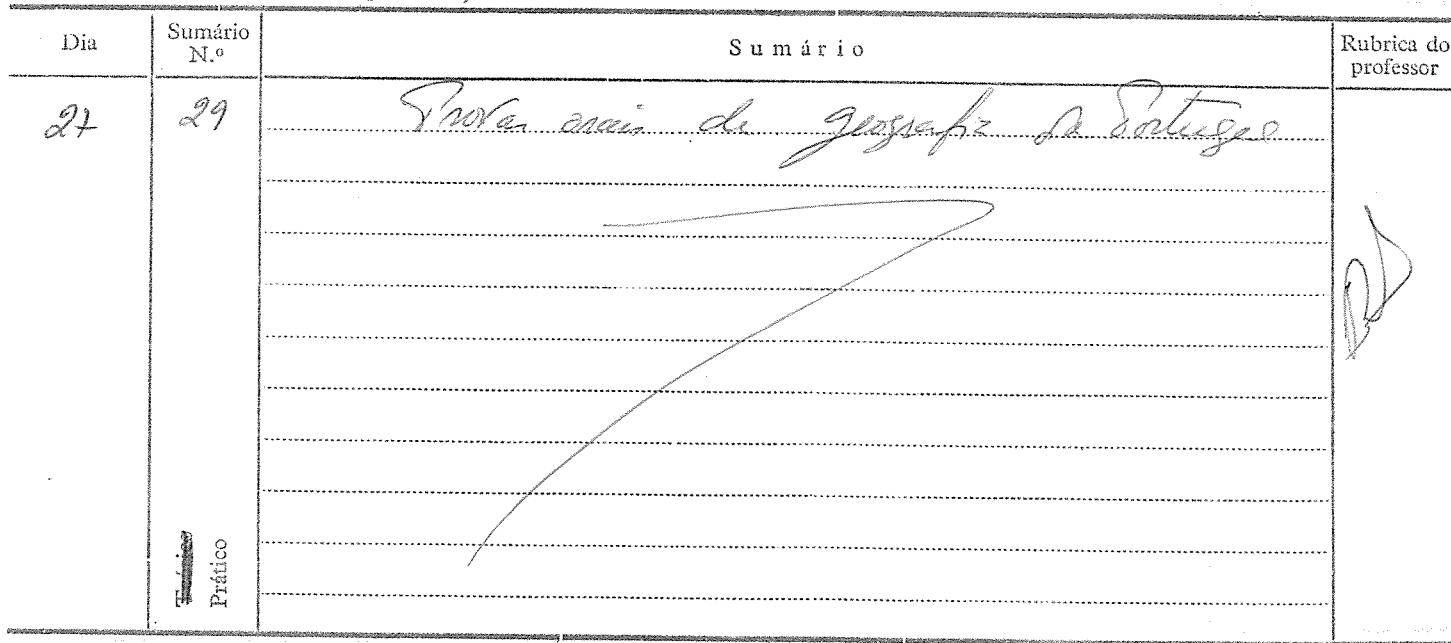 Dia
Sumário N.º
Sumário
Rubrica do professor
27
29
Provas orais de geografia de Portugal
Teórico
Prático